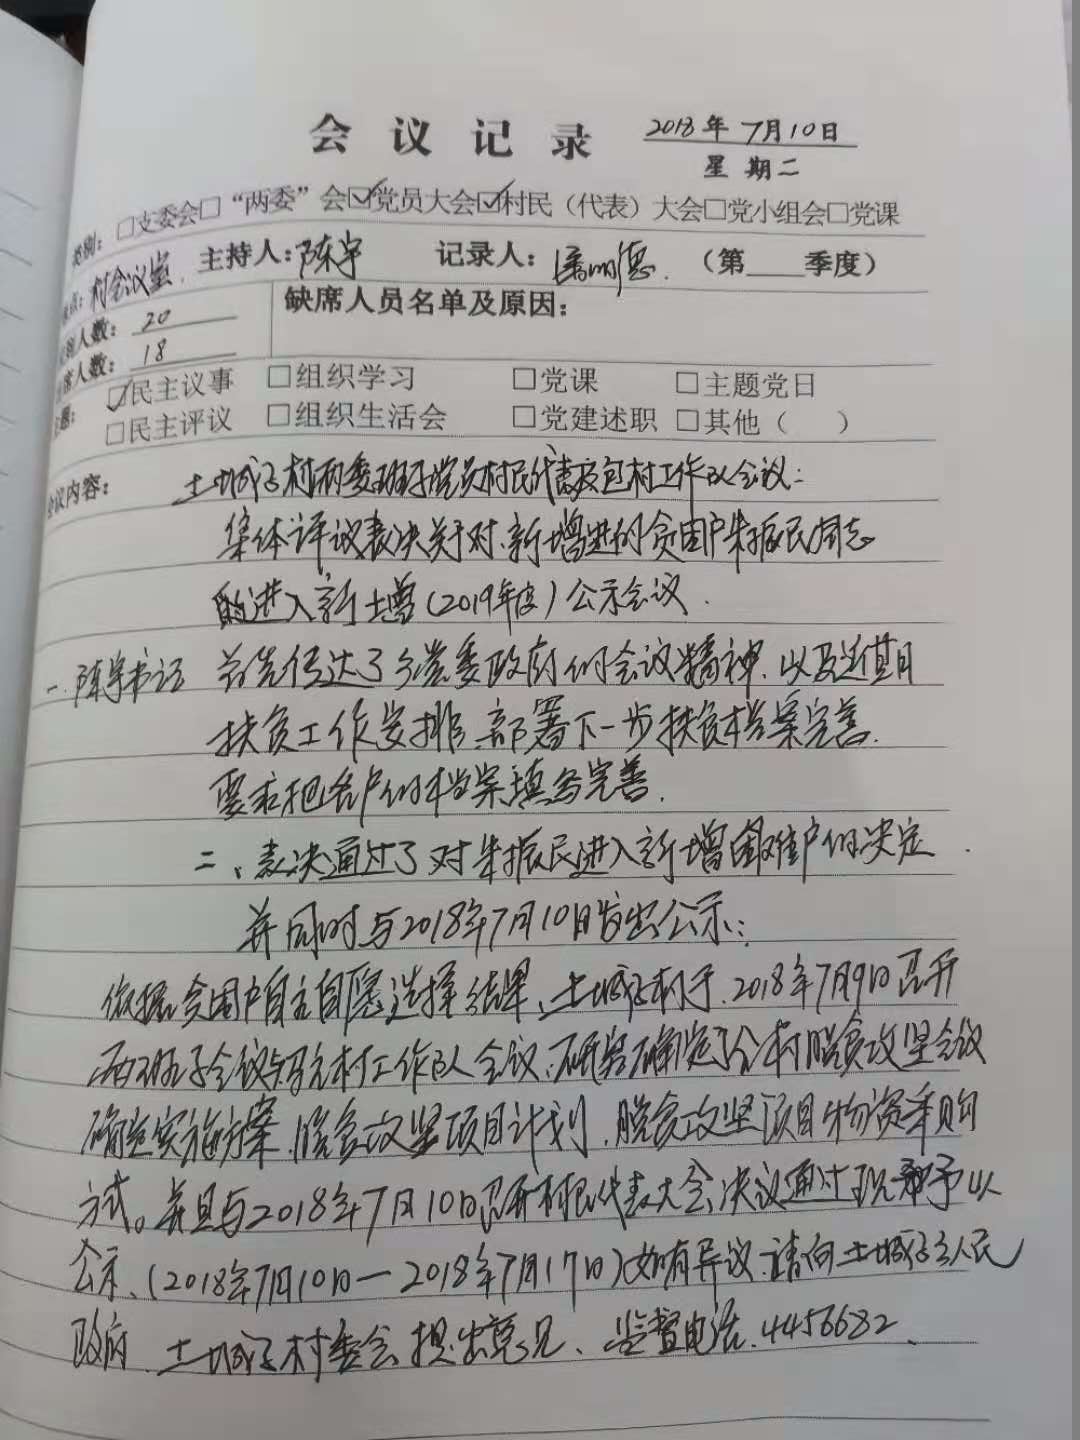 会议记录 2018年7月10日
星期二
类别：□支委会□“两委”会☑党员大会☑村民（代表）大会□党小组会□党课
点：村会议室 主持人：陈宇 记录人：德 （第 季度）
人数：20 缺席人员名单及原因：
席人数：18
题：☑民主议事 □组织学习 □党课 □主题党日
□民主评议 □组织生活会 □党建述职 □其他（ ）
会议内容： 土城子村两委班子党员村民代表及包村工作队会议：
集体评议表决关于对新增进的贫困户朱振民同志
的进入新土增（2019年度）公示会议.
一.陈宇书记 首先传达了乡党委政府的会议精神.以及近期
扶贫工作安排、部署下一步扶贫档案完善.
要求把各户的档案填写完善.
二、表决通过了对朱振民进入新增困难户的决定.
并同时与2018年7月10日发出公示：
依据贫困户自主自愿选择结果、土城子村于.2018年7月9日召开
两班子会议与驻村工作队会议.研究确定了全村脱贫攻坚会议
确定实施方案.脱贫攻坚项目计划.脱贫攻坚项目物资采购
方式。并且与2018年7月10日召开村民代表大会.决议通过现予以
公示、（2018年7月10日—2018年7月17日）如有异议.请向土城子乡人民
政府.土城子村委会提出意见、监督电话.4456682.